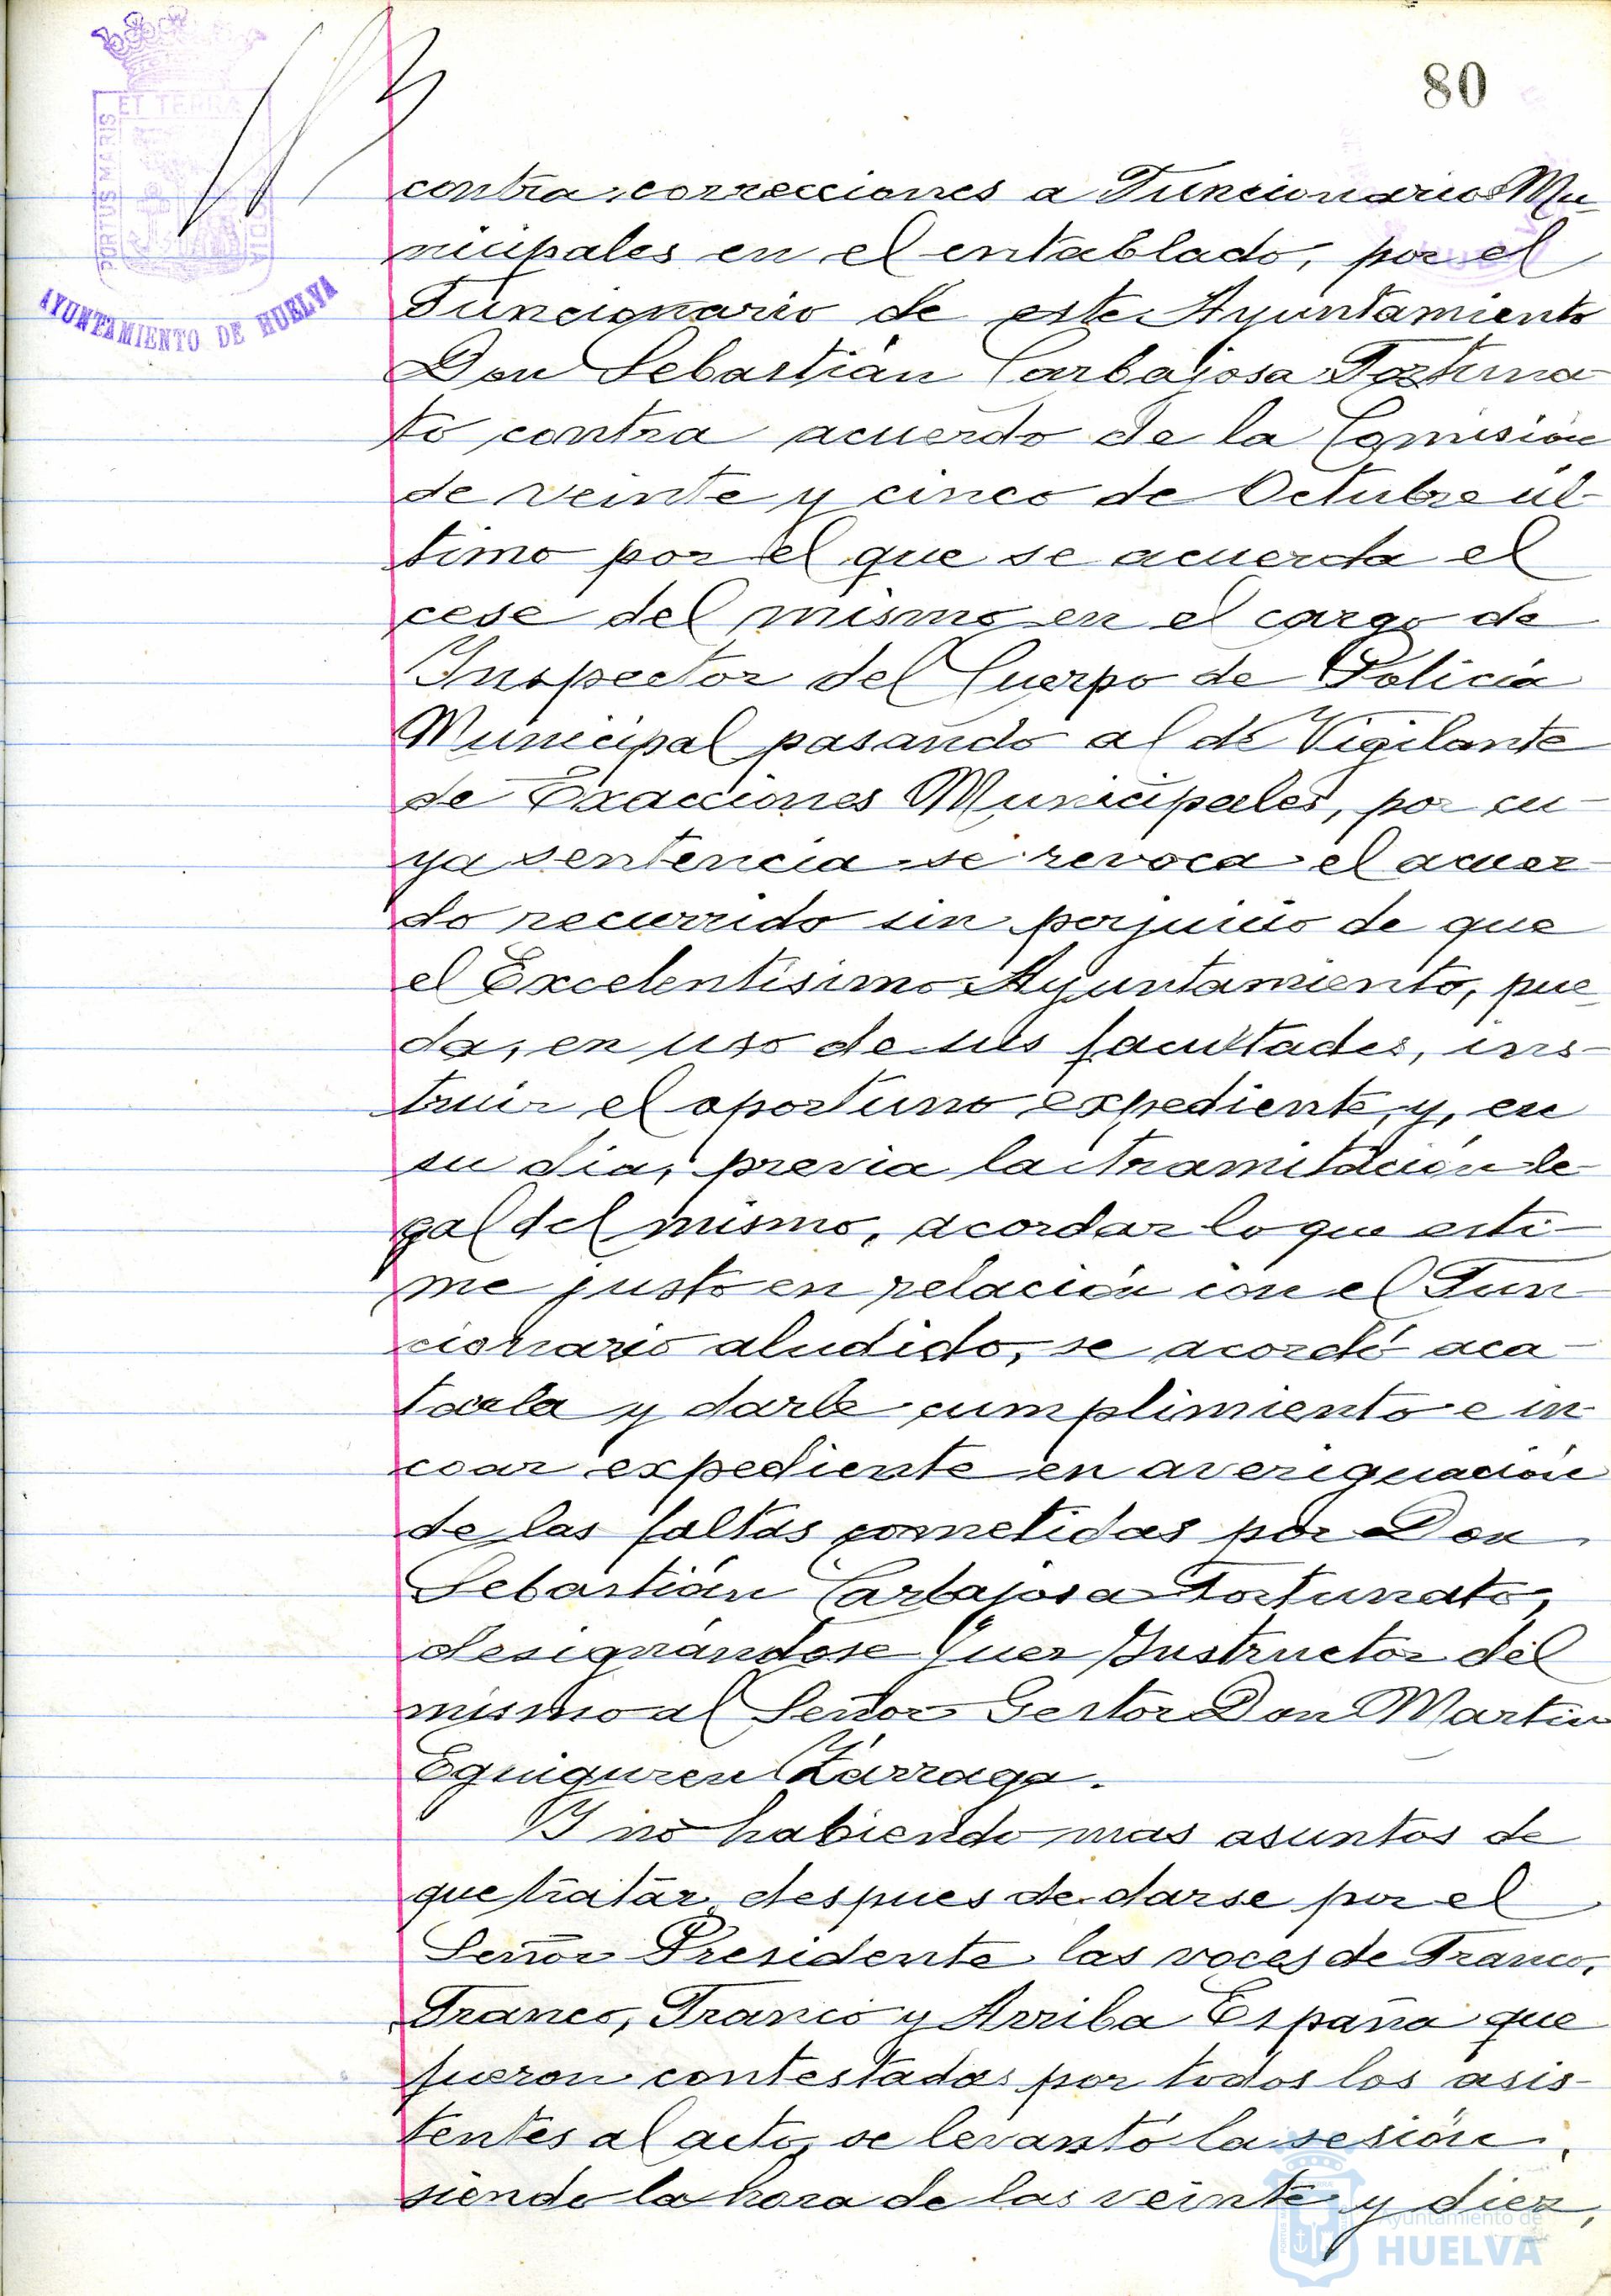 80
ET TERRA
PORTUS MARIS
AYUNTAMIENTO DE HUELVA
contra correcciones a Funcionarios Mu-
nicipales en el entablado, por el
Funcionario de este Ayuntamiento
Don Sebastián Carbajosa Fortuna-
to contra acuerdo de la Comisión
de veinte y cinco de Octubre úl-
timo por el que se acuerda el
cese del mismo en el cargo de
Inspector del Cuerpo de Policía
Municipal pasando al de Vigilante
de Exacciones Municipales, por cu-
ya sentencia se revoca el acuer-
do recurrido sin perjuicio de que
el Excelentísimo Ayuntamiento, pue-
da, en uso de sus facultades, ins-
truir el oportuno expediente, y, en
su día, previa la tramitación le-
gal del mismo, acordar lo que esti-
me justo en relación con el Fun-
cionario aludido, se acordó aca-
tarla y darle cumplimiento e in-
coar expediente en averiguación
de las faltas cometidas por Don
Sebastián Carbajosa Fortunato,
designándose Juez Instructor del
mismo al Señor Gestor Don Martin
Eguiguren Zárraga.
Y no habiendo mas asuntos de
que tratar despues de darse por el
Señor Presidente las voces de Franco,
Franco, Franco y Arriba España que
fueron contestadas por todos los asis-
tentes al acto, se levantó la sesión,
siendo la hora de las veinte y diez,
Ayuntamiento de
HUELVA